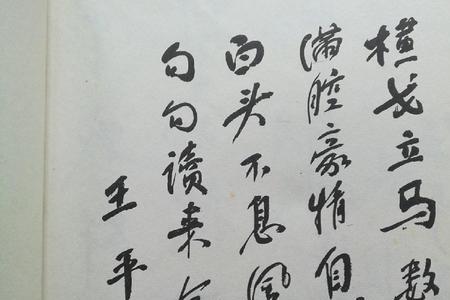 横戈立马数
满腔豪情自
白头不息风
句句读来
王平